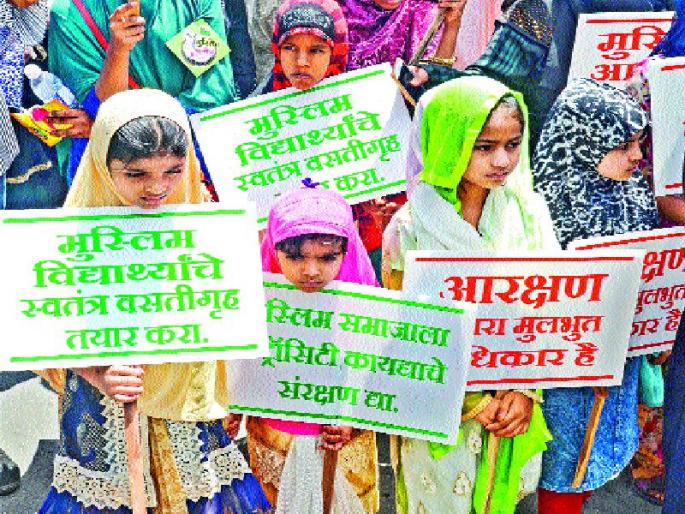 मुस्लिम
आ
मुस्लिम
विद्यार्थ्यांचे
स्वतंत्र वसतीगृह
करा.
मुस्लिम
विद्यार्थ्यांचे
स्वतंत्र वसतीगृह
तयार करा.
स्लिम समाजाला
ट्रॉसिटी कायद्याचे
संरक्षण द्या.
आरक्षण
रा मुलभुत
धिकार है
क्षण
मुलभुत
र है